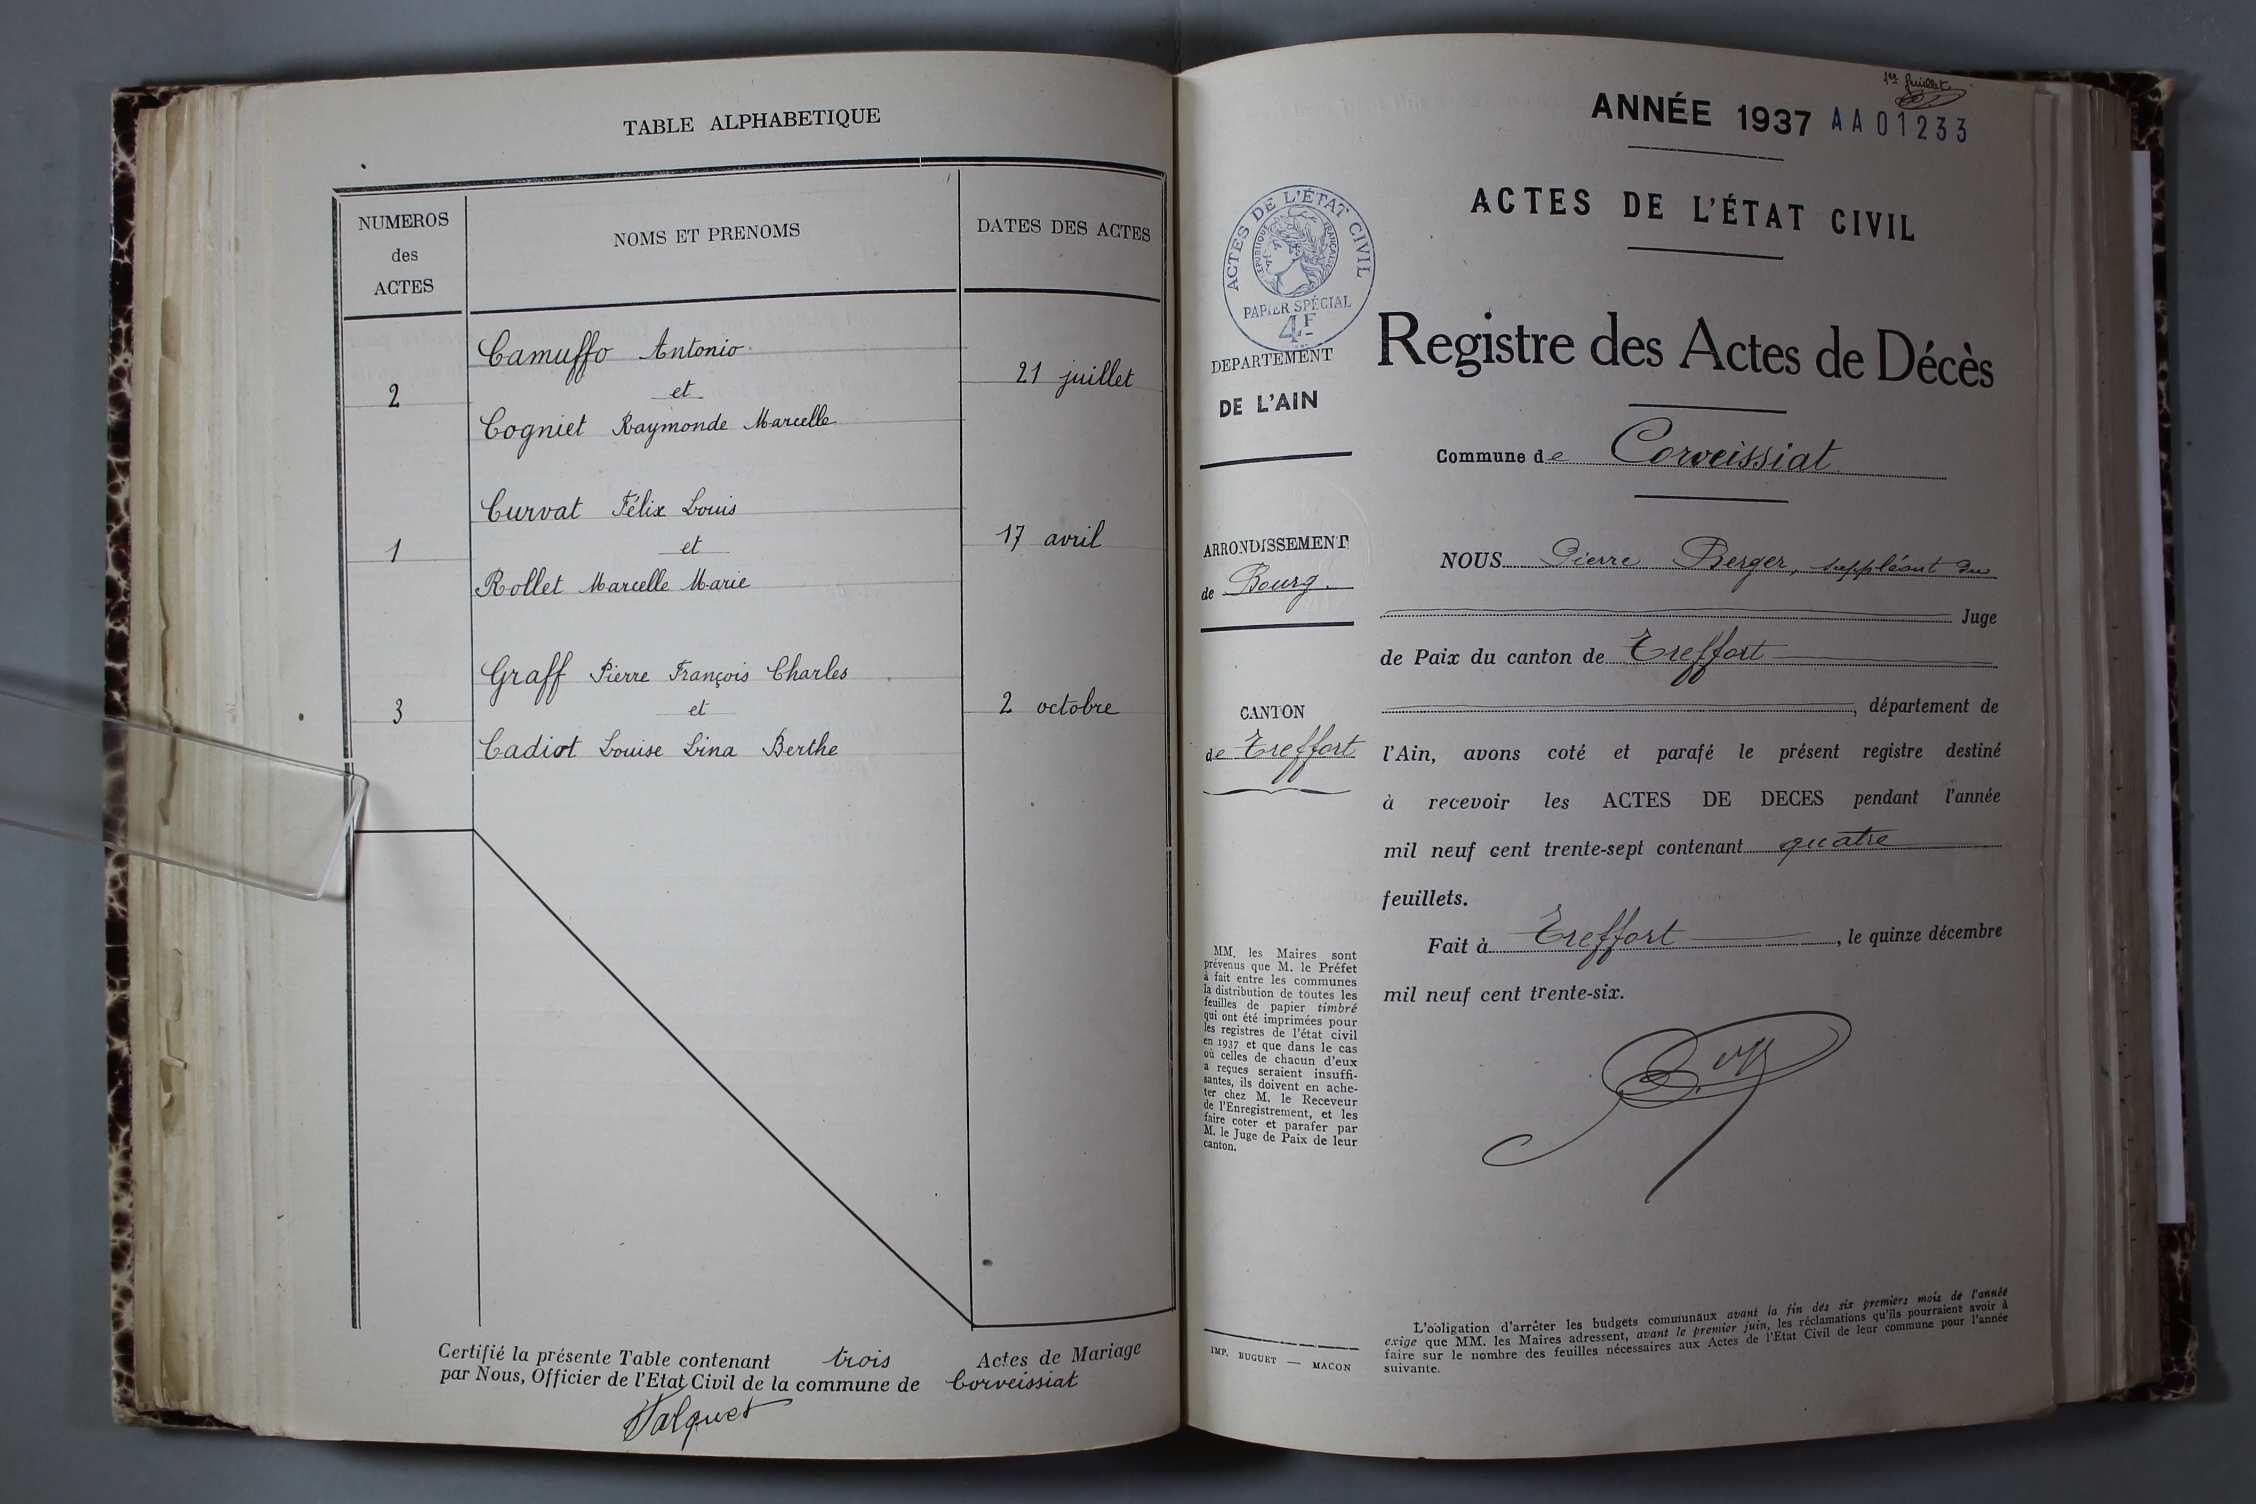 TABLE ALPHABETIQUE
NUMEROS
des
ACTES
NOMS ET PRENOMS
DATES DES ACTES
Camuffo Antonio
2
et
21 juillet
Cogniet Raymonde Marcelle
Curvat Félix Louis
1
et
17 avril
Rollet Marcelle Marie
Graff Pierre François Charles
3
et
2 octobre
Cadiot Louise Lina Berthe
Certifié la présente Table contenant trois Actes de Mariage
par Nous, Officier de l'Etat Civil de la commune de Corveissiat
1er feuillet
ANNÉE 1937 AA01233
ACTES DE L'ÉTAT CIVIL
ACTES DE L'ÉTAT CIVIL
RÉPUBLIQUE FRANÇAISE
PAPIER SPÉCIAL
4F
DEPARTEMENT
DE L'AIN
ARRONDISSEMENT
de Bourg
CANTON
de Treffort
MM. les Maires sont
prévenus que M. le Préfet
à fait entre les communes
la distribution de toutes les
feuilles de papier timbré
qui ont été imprimées pour
les registres de l'état civil
en 1937 et que dans le cas
où celles de chacun d'eux
a reçues seraient insuffi-
santes, ils doivent en ache-
ter chez M. le Receveur
de l'Enregistrement, et les
faire coter et parafer par
M. le Juge de Paix de leur
canton.
IMP. BUGUET — MACON
Registre des Actes de Décès
Commune de Corveissiat
NOUS Pierre Berger, suppléant du
Juge
de Paix du canton de Treffort
, département de
l'Ain, avons coté et parafé le présent registre destiné
à recevoir les ACTES DE DECES pendant l'année
mil neuf cent trente-sept contenant quatre
feuillets.
Fait à Treffort, le quinze décembre
mil neuf cent trente-six.
L'obligation d'arrêter les budgets communaux avant la fin des six premiers mois de l'année
exige que MM. les Maires adressent, avant le premier juin, les réclamations qu'ils pourraient avoir à
faire sur le nombre des feuilles nécessaires aux Actes de l'Etat Civil de leur commune pour l'année
suivante.